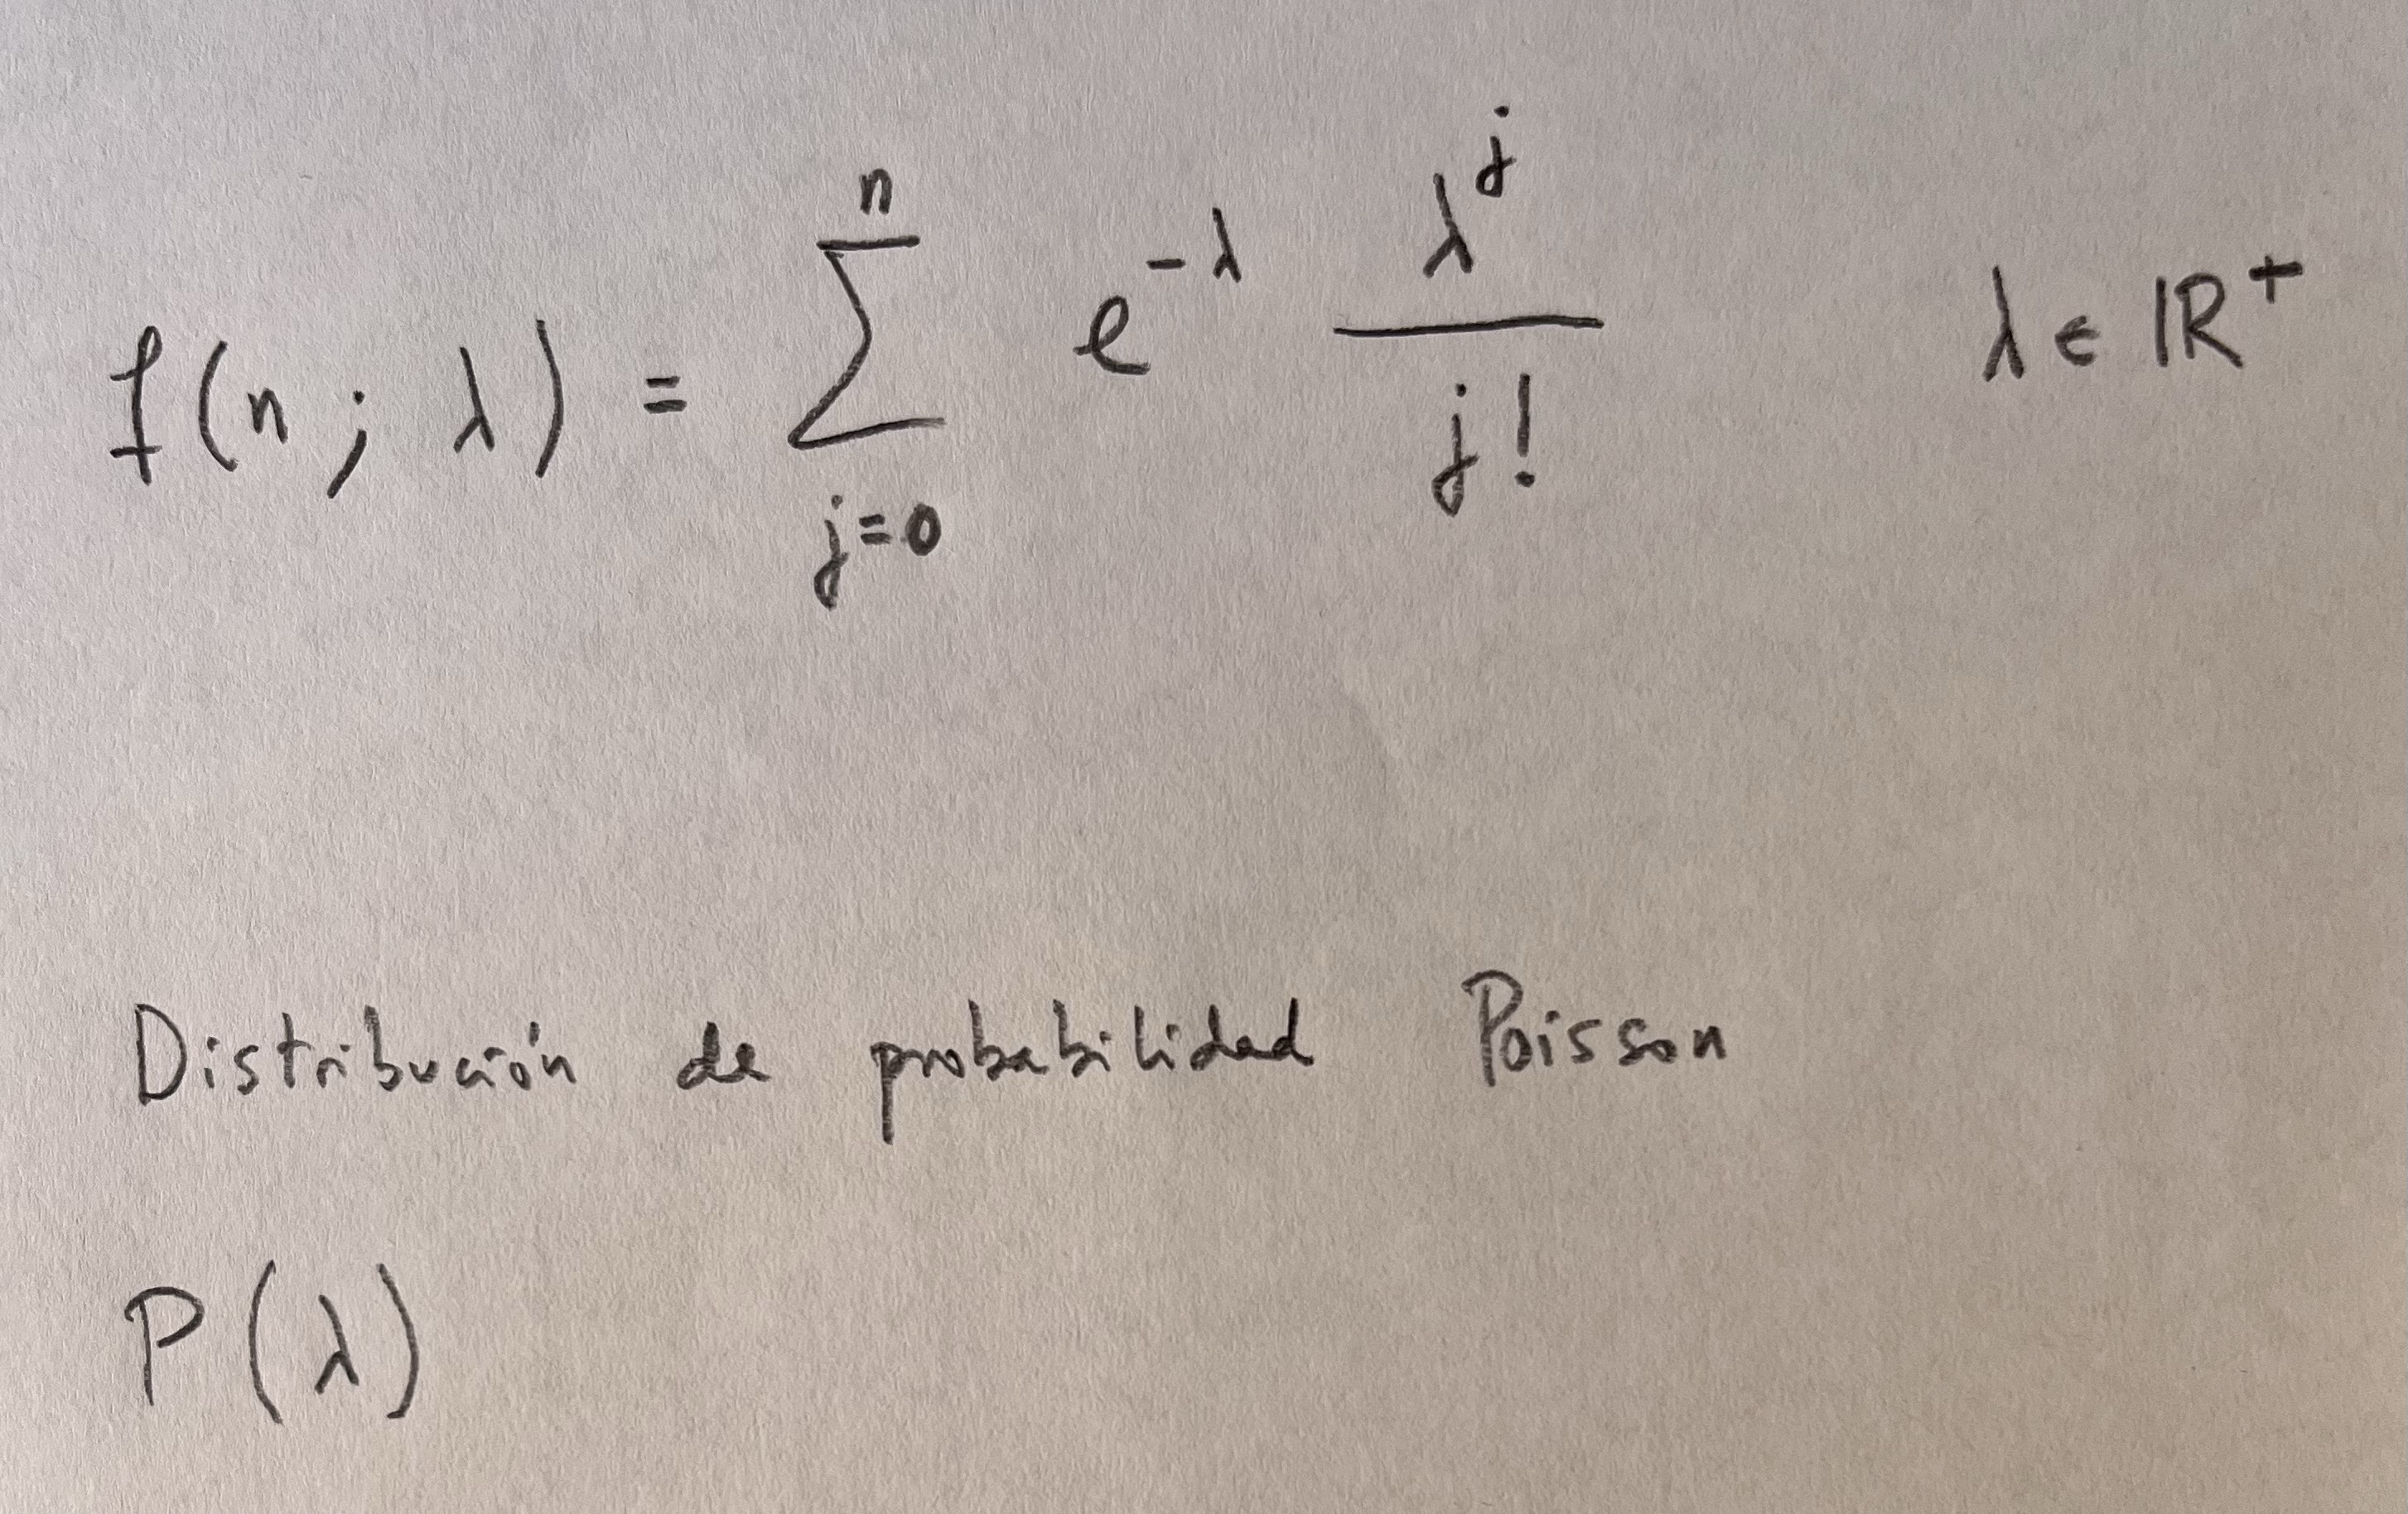 f(n; λ) = \sum_{j=0}^{n} e^{-λ} \frac{λ^j}{j!} λ ∈ ℝ⁺
Distribución de probabilidad Poisson
P(λ)